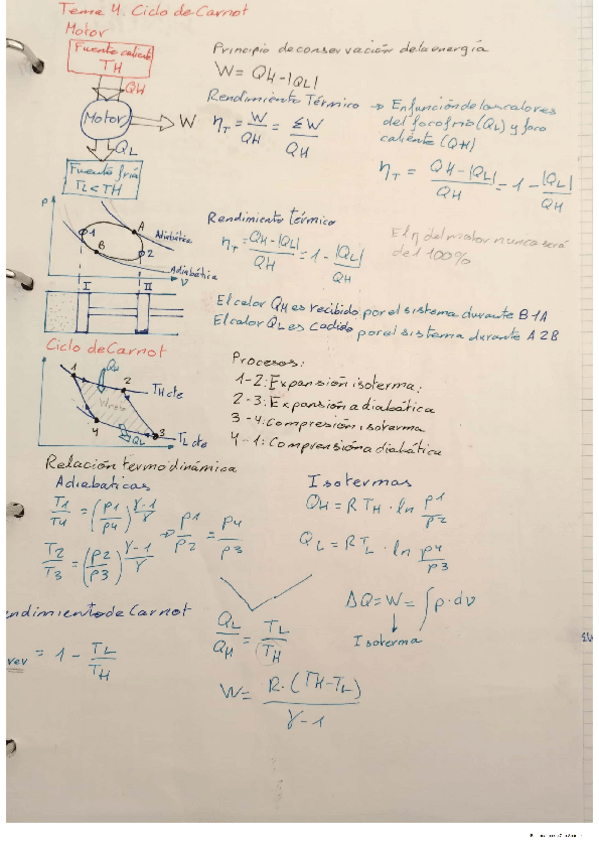 Tema 4. Ciclo de Carnot
Motor
Fuente caliente
TH
QH
Motor
W
QL
Fuente fría
TL<TH
Principio de conservación de la energía
W = QH-|QL|
Rendimiento Térmico → En función de los calores
del foco frío (QL) y foco
caliente (QH)
ηT = W/QH = ΣW/QH
ηT = QH-|QL|/QH = 1 - |QL|/QH
P
1
A
B
2
Adiabática
Adiabática
V
I
II
Rendimiento térmico
ηT = QH-|QL|/QH = 1 - |QL|/QH
El η del motor nunca será
de 100%
El calor QH es recibido por el sistema durante B1A
El calor QL es cedido por el sistema durante A2B
Ciclo de Carnot
1
QH
2
TH cte
4
QL
3
TL cte
Procesos:
1-2: Expansión isoterma:
2-3: Expansión adiabática
3-4: Compresión isoterma
4-1: Compresión adiabática
Relación termodinámica
Adiabaticas
T1/T4 = (p1/p4)^γ-1/γ
T2/T3 = (p2/p3)^γ-1/γ
p1/p2 = p4/p3
Isotermas
QH = R TH · ln p1/p2
QL = R TL · ln p4/p3
QL/QH = TL/TH
ΔQ = W = ∫p·dv
Isoterma
W = R·(TH-TL)/γ-1
endimiento de Carnot
rev = 1 - TL/TH